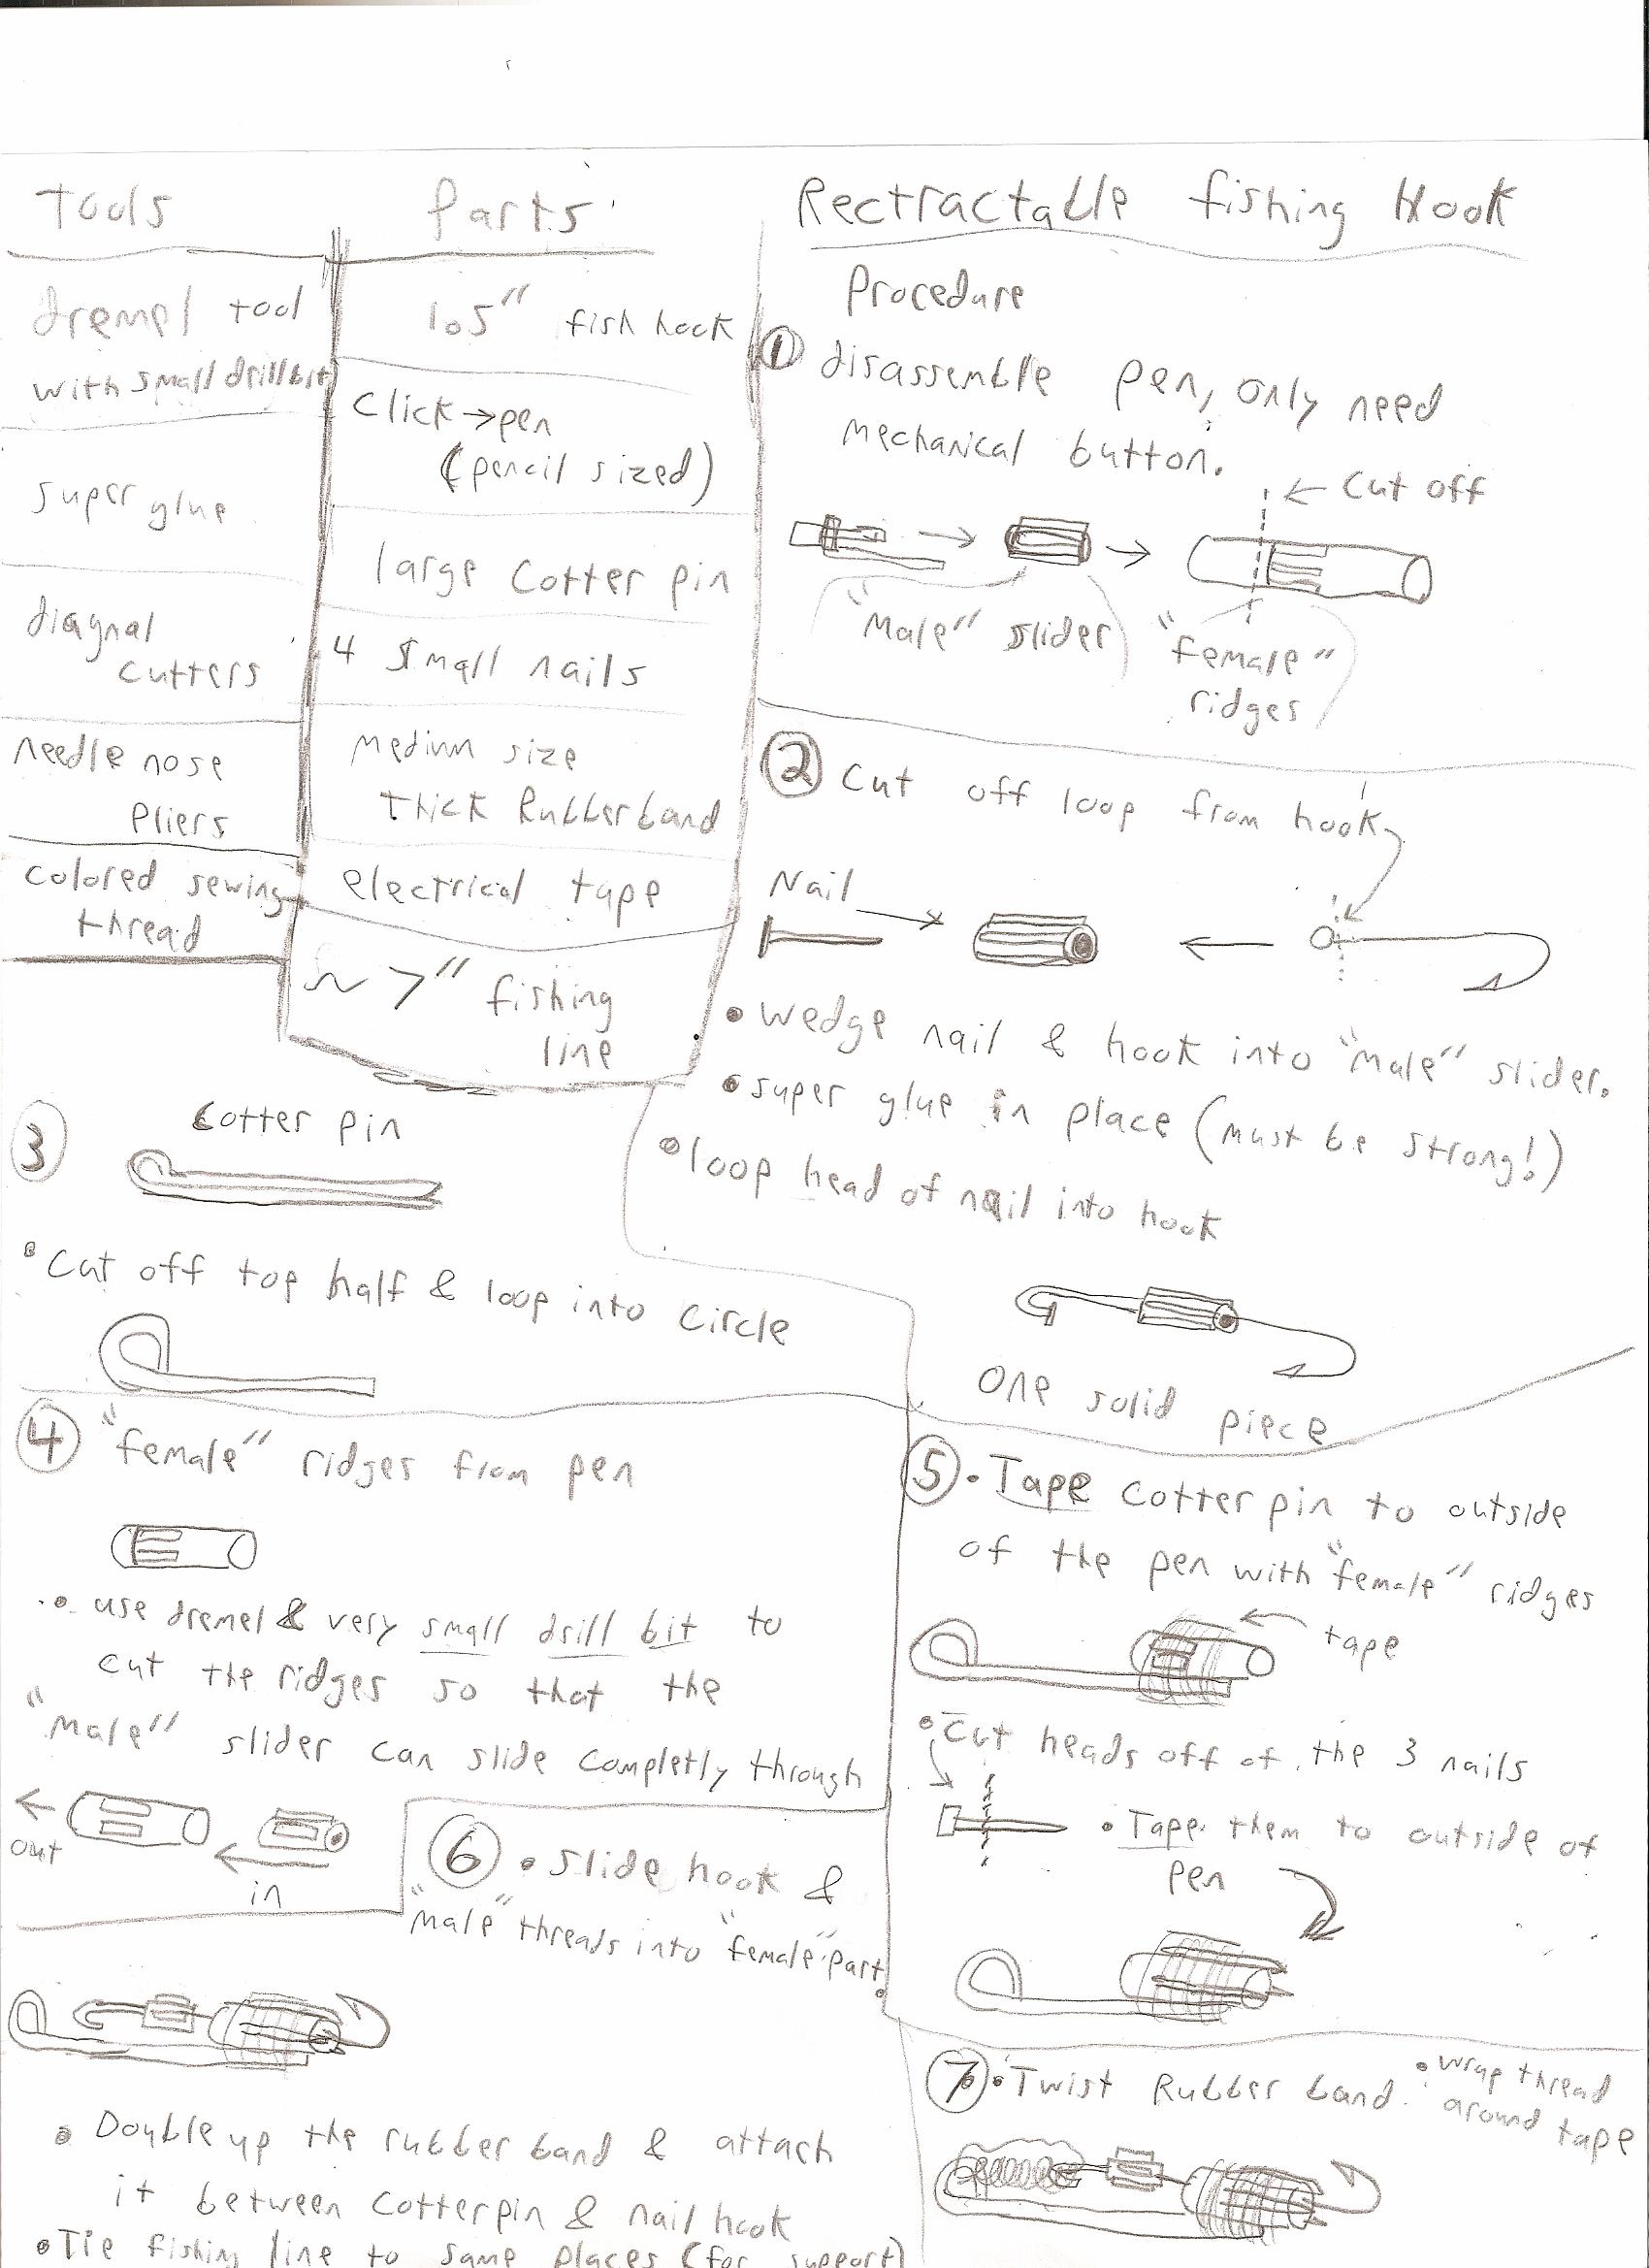 Tools
drempl tool
with small drill bit
super glue
diagnal
cutters
needle nose
Pliers
colored sewing
thread
Parts
1.5" fish hook
Click → pen
(pencil sized)
large Cotter pin
4 small nails
medium size
Thick Rubberband
electrical tape
~ 7" fishing
line
Rectractable fishing Hook
Procedure
① disassemble pen, only need
mechanical button.
← Cut off
"Male" slider
"female"
ridges
② Cut off loop from hook
Nail
• wedge nail & hook into "male" slider.
• super glue in place (must be strong!)
• loop head of nail into hook
one solid piece
③ Cotter pin
• Cut off top half & loop into circle
④ "female" ridges from pen
• use dremel & very small drill bit to
cut the ridges so that the
"Male" slider can slide completly through
out
in
⑤ • Tape cotter pin to outside
of the pen with "female" ridges
tape
• Cut heads off of the 3 nails
• Tape them to outside of
pen
⑥ • Slide hook &
"male" threads into "female" part
• Double up the rubber band & attach
it between cotter pin & nail hook
• Tie fishing line to same places (for support)
⑦ • Twist Rubber band
• wrap thread
around tape